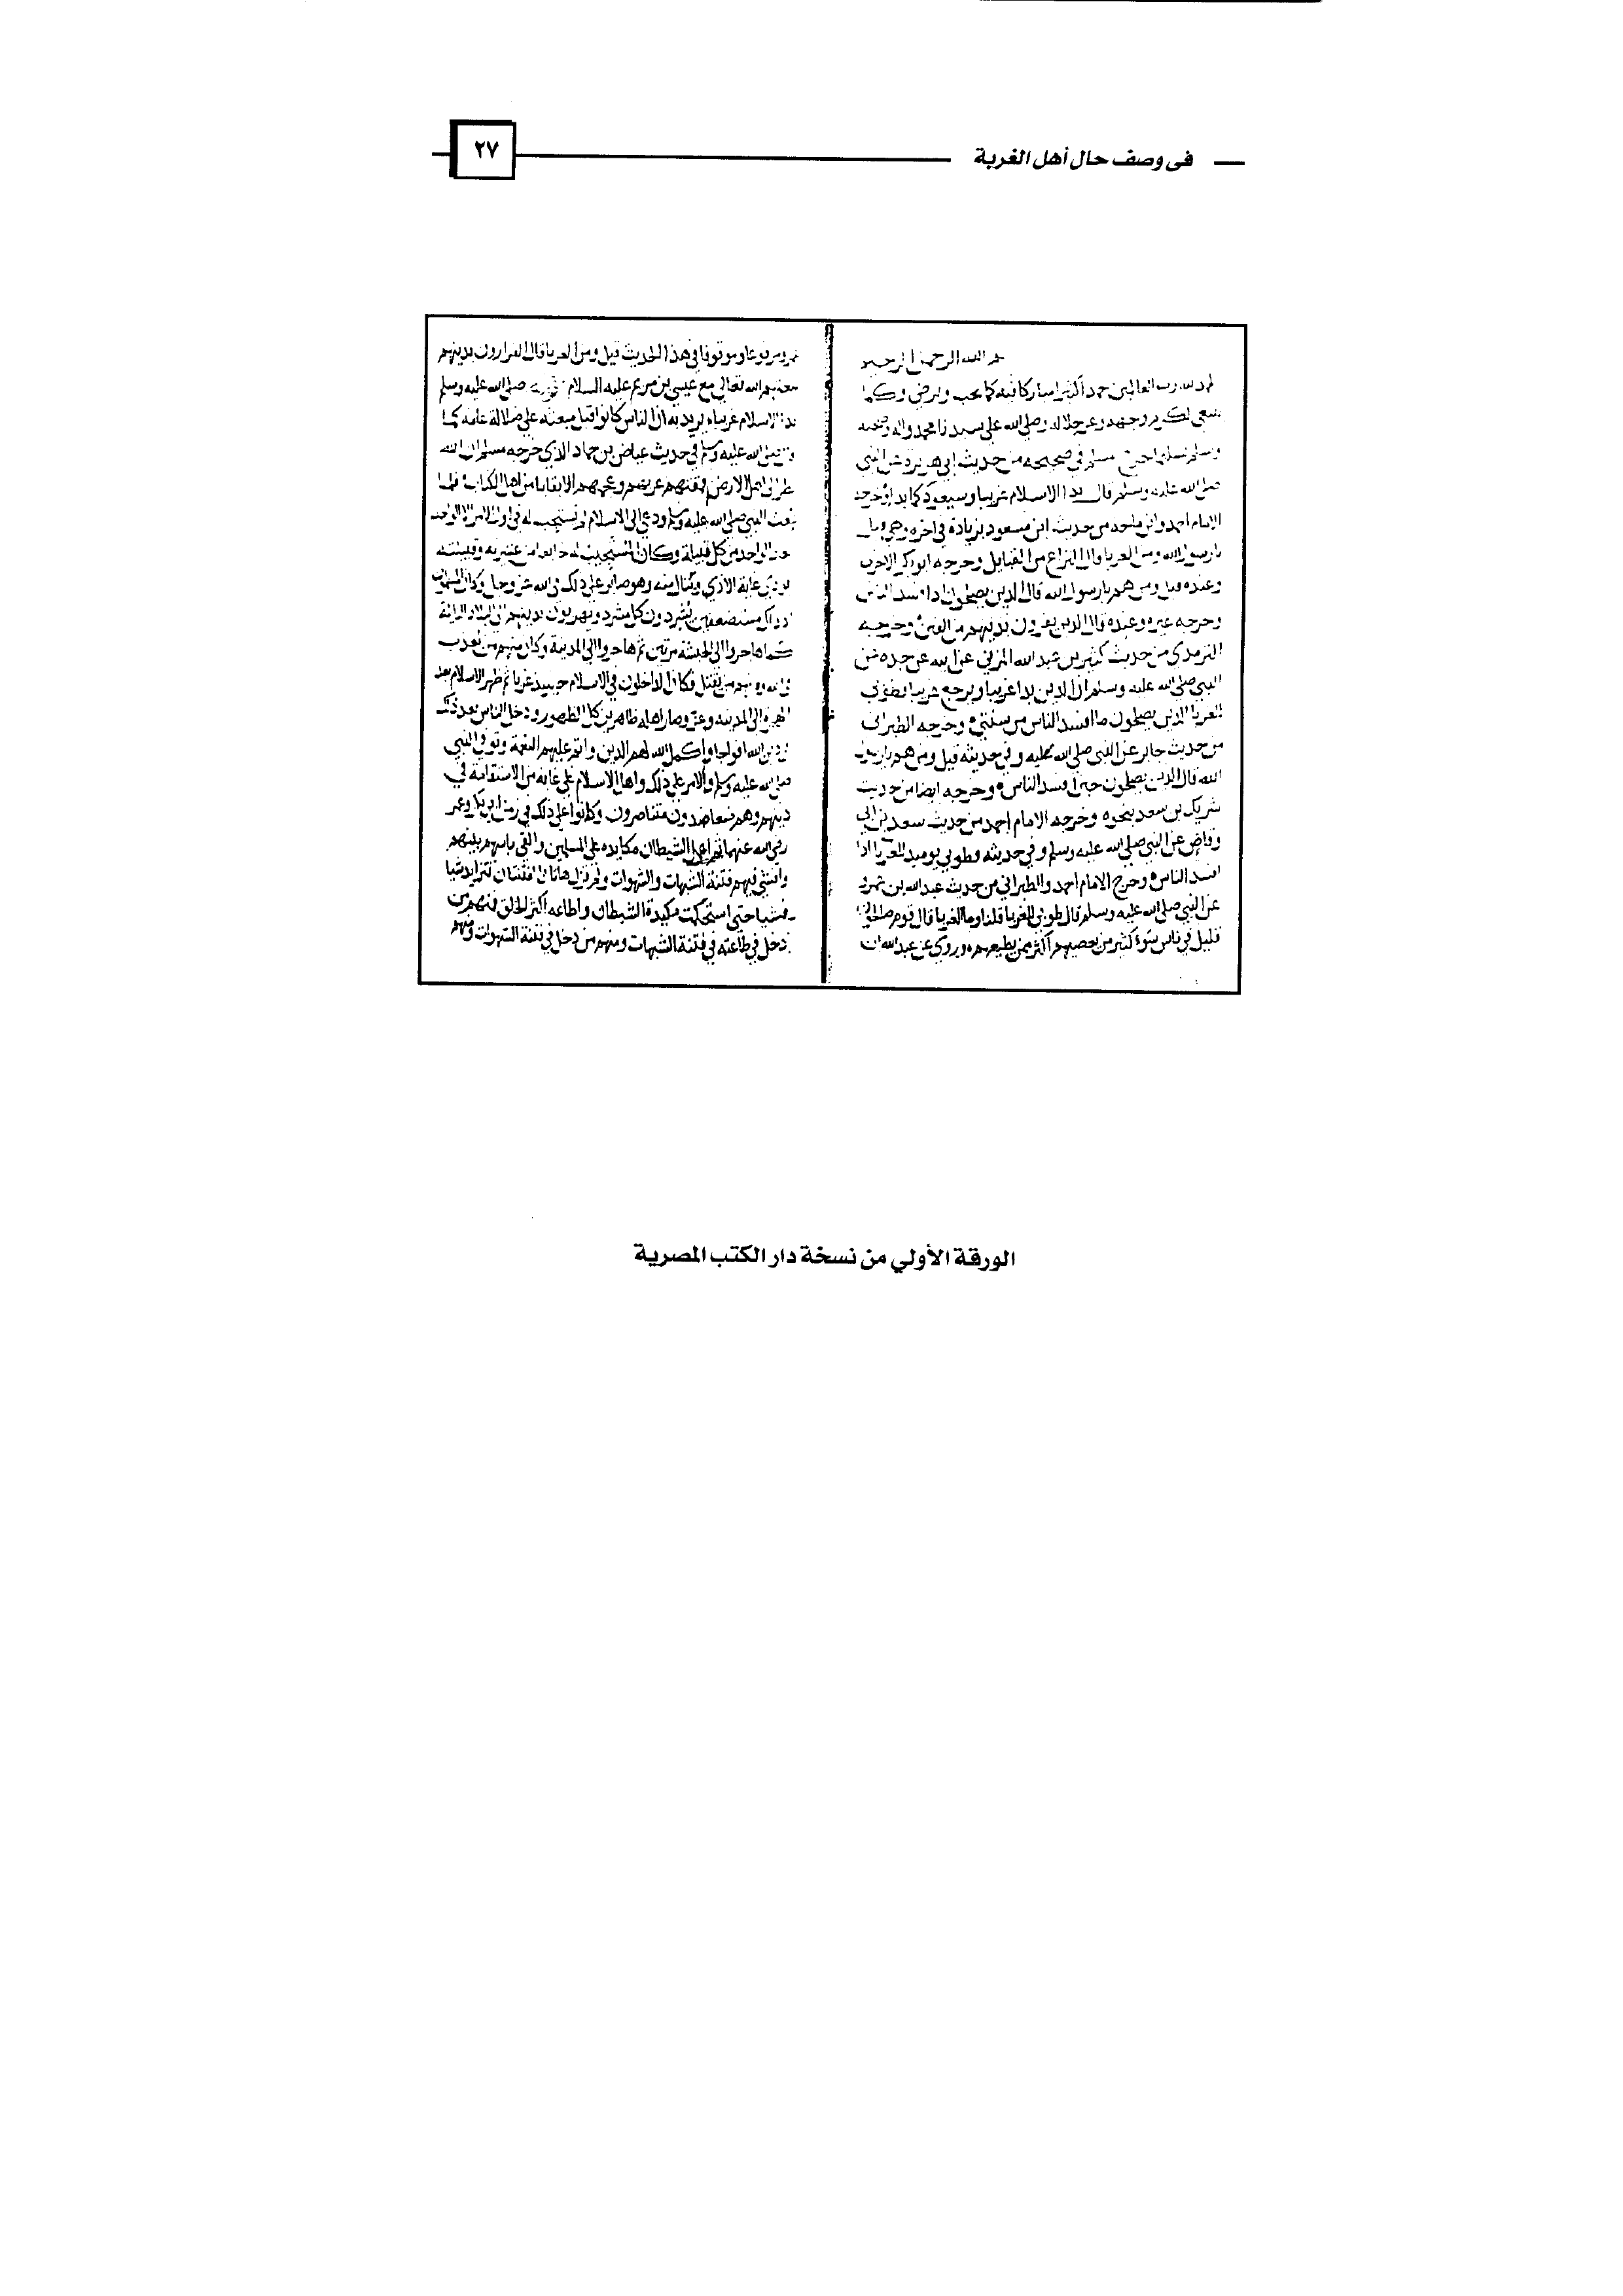 في وصف حال أهل الغربة
٢٧
الله الرحمن الرحيم
رب العالمين حمدا كثيرا مباركا فيه كما يحب ويرضى وكما
لكرم وجهه وعز جلاله وصلى الله على سيدنا محمد واله وصحبه
وسلم تسليما مسلم في صحيحه من حديث ابي هريرة عن النبي
صلى الله عليه وسلم قال بدا الاسلام غريبا وسيعود كما بدا وخرجه
الامام احمد وابن ماجه من حديث ابن مسعود بزيادة في اخره وهي
يا رسول الله ومن الغربا قال النزاع من القبايل وخرجه ابو بكر الاجري
وعنده قيل ومن هم يا رسول الله قال الذين يصلحون اذا فسد الناس
وخرجه غيره وعنده قال الذين يفرون بدينهم من الفتن وخرجه
الترمذي من حديث كثير بن عبد الله المزني عن ابيه عن جده عن
النبي صلى الله عليه وسلم ان الدين بدا غريبا ويرجع غريبا فطوبى
للغربا الذين يصلحون ما افسد الناس من سنتي وخرجه الطبراني
من حديث جابر عن النبي صلى الله عليه وفي حديثه قيل ومن هم يا رسول
الله قال الذين يصلحون حين فسد الناس وخرجه ايضا من حديث
شريك بن سعد بنحوه وخرجه الامام احمد من حديث سعد بن ابي
وقاص عن النبي صلى الله عليه وسلم وفي حديثه وطوبى يوميذ للغربا اذا
فسد الناس وخرج الامام احمد والطبراني من حديث عبد الله بن عمرو
عن النبي صلى الله عليه وسلم قال طوبى للغربا قلنا وما الغربا قال قوم صالحون
قليل في ناس سوء كثير من يعصيهم اكثر ممن يطيعهم وروي عن عبد الله بن
عمرو مرفوعا وموقوفا في هذا الحديث قيل ومن الغربا قال الفرارون بدينهم
يبعثهم الله تعالى مع عيسى بن مريم عليه السلام قوله صلى الله عليه وسلم
بدا الاسلام غريبا يريد به ان الناس كانوا قبل مبعثه على ضلالة عامة كما
صلى الله عليه وسلم في حديث عياض بن حمار الذي خرجه مسلم ان الله
نظر الى اهل الارض فمقتهم عربهم وعجمهم الا بقايا من اهل الكتاب فلما
بعث النبي صلى الله عليه وسلم ودعى الى الاسلام لم يستجب له في اول الامر الا الواحد
بعد الواحد من كل قبيلة وكان المستجيب له خايفا من عشيرته وقبيلته
يوذى غاية الاذى وينال منه وهو صابر على ذلك في الله عز وجل وكان المسلمون
اذ ذاك مستضعفين يشردون كل مشرد ويهربون بدينهم الى البلاد النائية
كما هاجروا الى الحبشة مرتين ثم هاجروا الى المدينة وكان منهم من يعذب
في الله ومنهم من يقتل فكان الداخلون في الاسلام حينيذ غربا ثم ظهر الاسلام بعد
الهجرة الى المدينة وعز وصار اهله ظاهرين كل الظهور ودخل الناس بعد ذلك
في دين الله افواجا واكمل الله لهم الدين واتم عليهم النعمة وتوفي النبي
صلى الله عليه وسلم والامر على ذلك واهل الاسلام على غاية من الاستقامة في
دينهم وهم متعاضدون متناصرون وكانوا على ذلك في زمن ابي بكر وعمر
رضي الله عنهما ثم اعمل الشيطان مكايده على المسلمين والقى باسهم بينهم
وافشى فيهم فتنة الشبهات والشهوات ولم تزل هاتان الفتنتان تتزايد شيا
فشيا حتى استحكمت مكيدة الشيطان واطاعه اكثر الخلق فمنهم من
دخل في طاعته في فتنة الشبهات ومنهم من دخل في فتنة الشهوات ومنهم
الورقة الأولي من نسخة دار الكتب المصرية